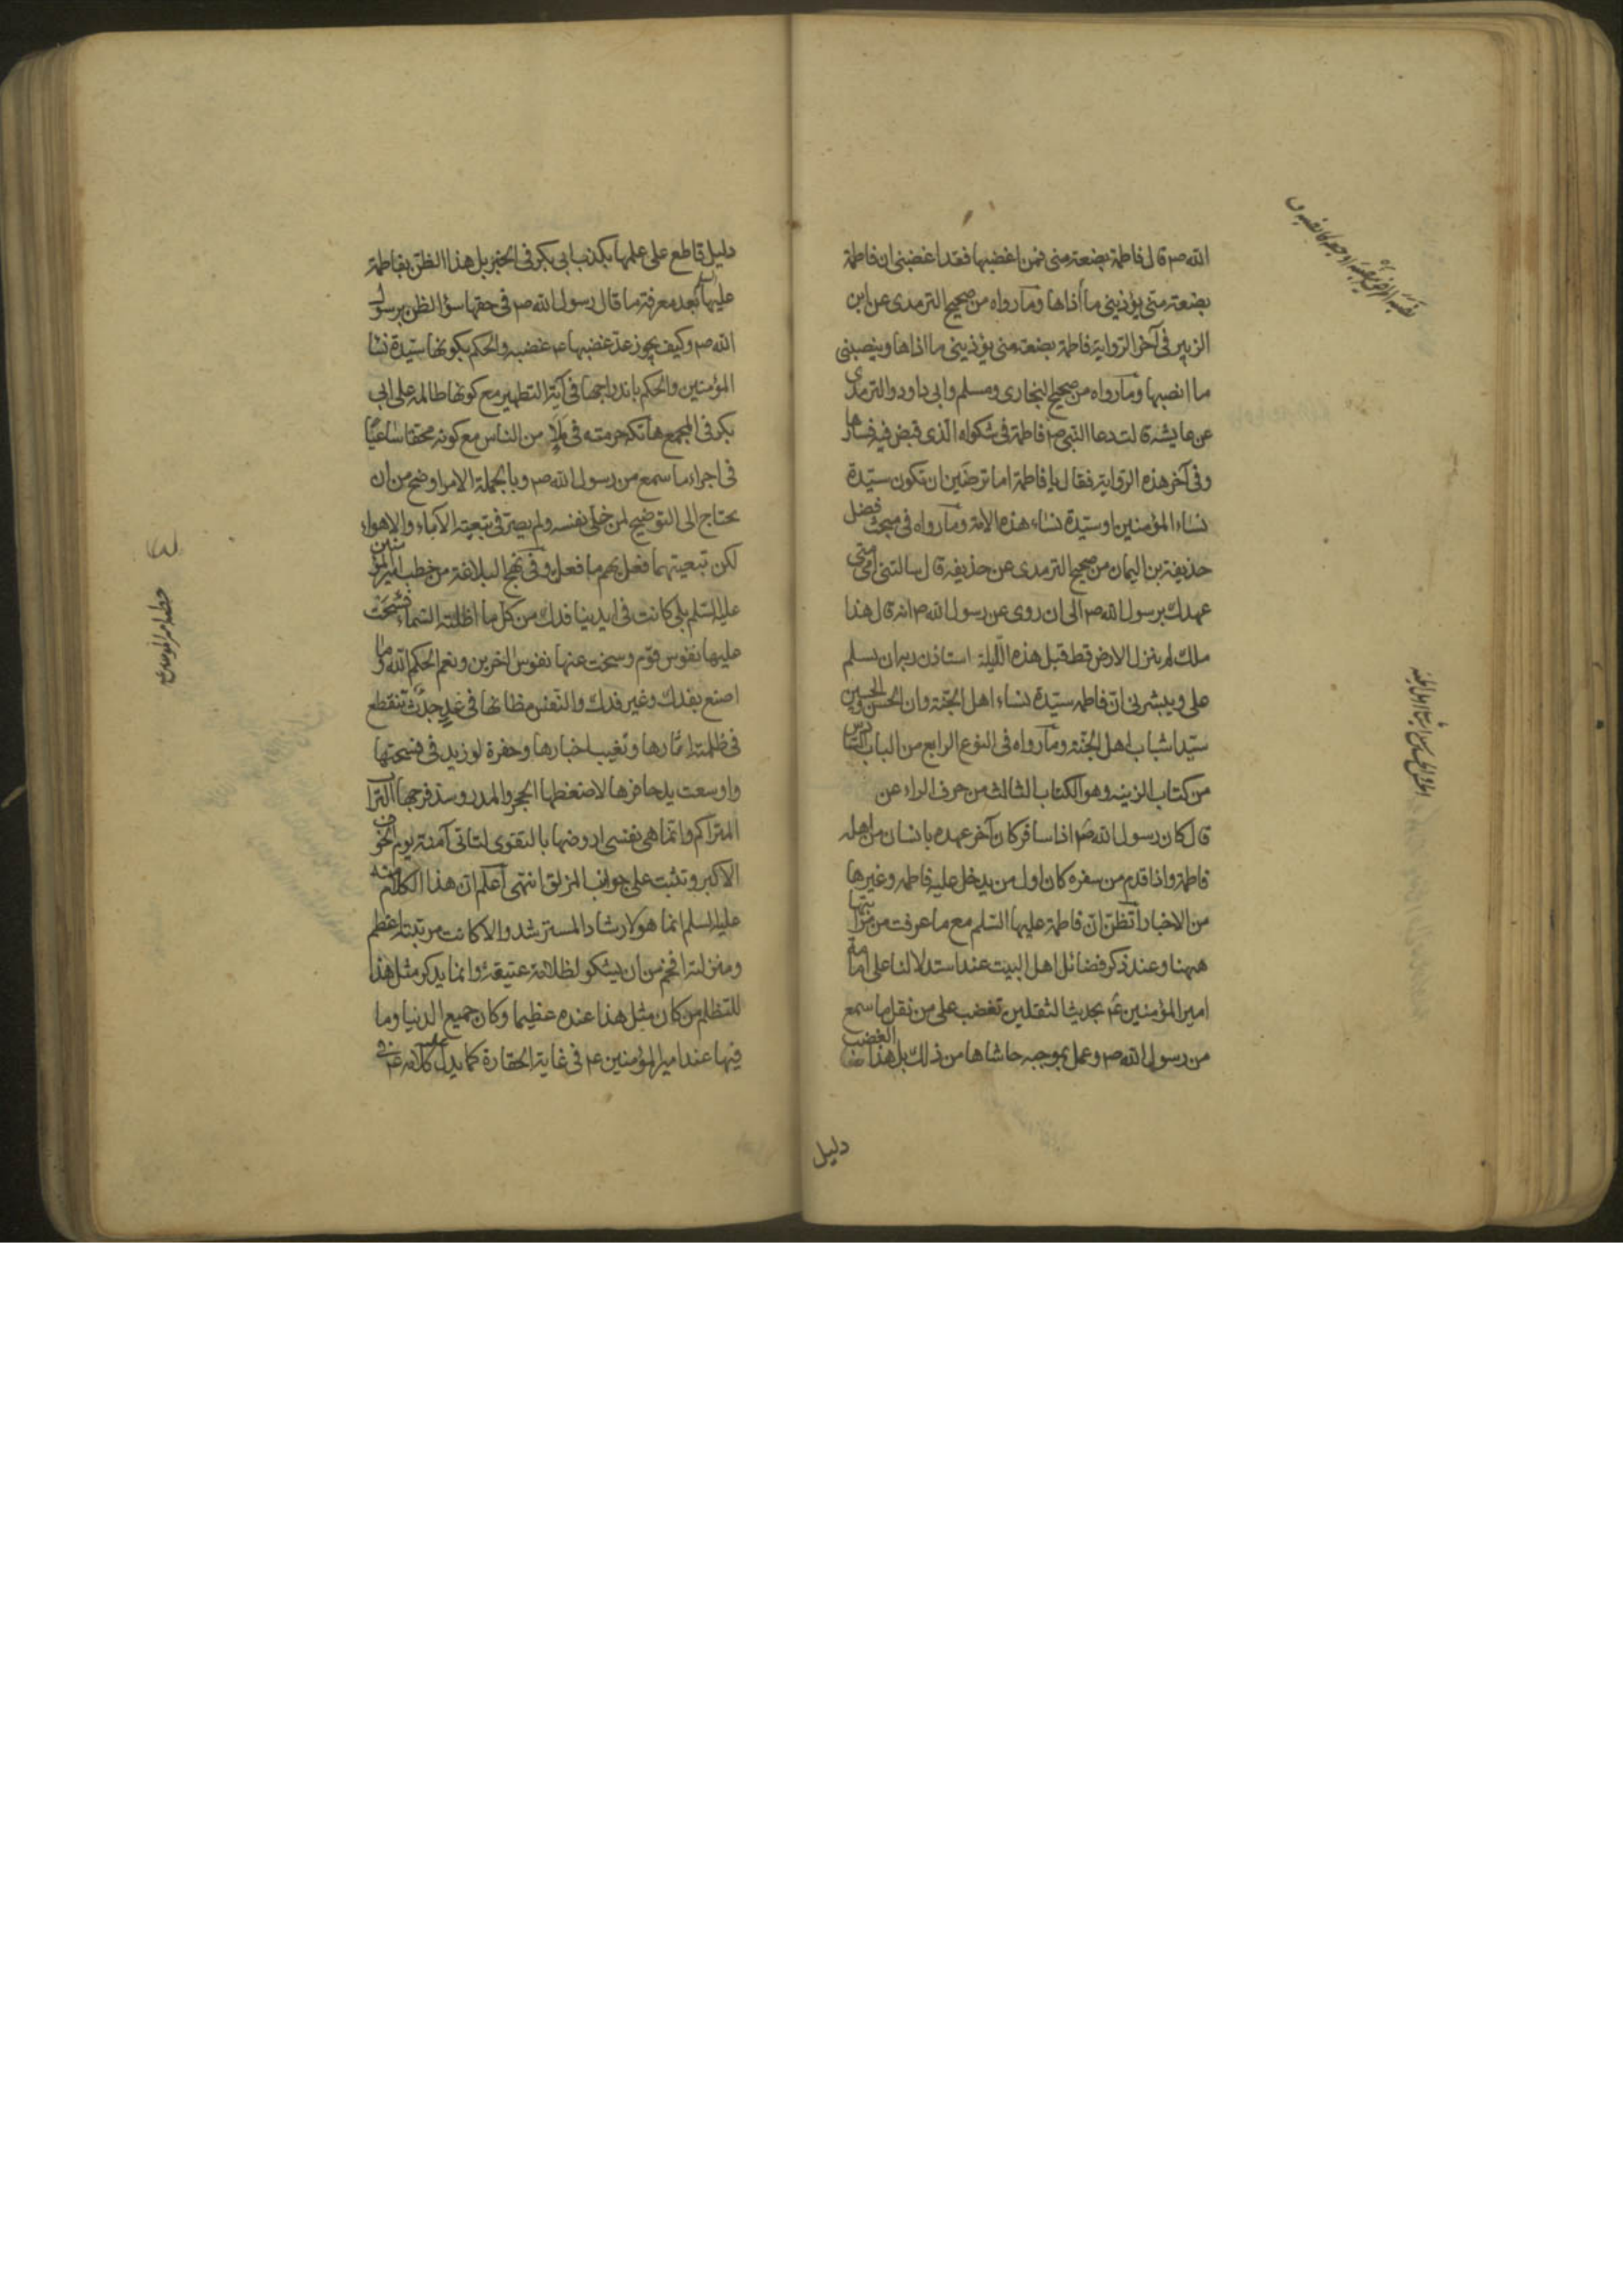 الله صم قال فاطمة بضعة منى فمن اغضبها فقد اغضبنى ان فاطمة
بضعة منى يؤذينى ما أذاها وما رواه من صحيح الترمدى عن ابن
الزبير فى آخر الرواية فاطمة بضعة منى يؤذينى ما اذاها وينصبنى
ما انصبها وما رواه من صحيح البخارى ومسلم وابى داود والترمدى
عن عايشة قالت دعا النبى صم فاطمة فى شكواه الذى قبض فيه فسارها
وفى آخر هذه الرواية فقال يا فاطمة اما ترضَين ان تكون سيّدة
نساء المؤمنين او سيّدة نساء هذه الامة وما رواه فى مبحث فضل
حذيفة بن اليمان من صحيح الترمدى عن حذيفة قال سالتنى امى متى
عهدك برسول الله صم الى ان روى عن رسول الله صم انه قال هذا
ملك لم ينزل الارض قط قبل هذه الليلة استاذن ربه ان يسلم
على ويبشرنى ان فاطمه سيّدة نساء اهل الجنّة وان الحسن والحسين
سيّدا شباب اهل الجنّة وما رواه فى النوع الرابع من الباب السادس
من كتاب الزينه وهو الكتاب الثالث من حرف الراء عن
قال كان رسول الله صم اذا سافر كان آخر عهده بانسان من اهله
فاطمة واذا قدم من سفره كان اول من يدخل عليه فاطمه وغيرها
من الاخبار اتظنّ انّ فاطمة عليها السّلم مع ما عرفت من منزلتها
ههنا وعند ذكر فضائل اهل البيت عند استدلالنا على امامة
امير المؤمنين عم بحديث الثقلين تغضب على من نقل ما سمع
من رسول الله صم وعمل بموجبه حاشاها من ذلك بل هذا الغضب
دليل
دليل قاطع على علمها بكذب ابى بكر فى الخبر بل هذا الظن بفاطمة
عليها بعد معرفة ما قال رسول الله صم فى حقها سؤ الظن برسول
الله صم وكيف يجوز عدّ غضبها عم غضبه والحكم بكونها سيّدة نساء
المؤمنين والحكم باندراجها فى آية التطهير مع كونها ظالمة على ابى
بكر فى المجمع هاتكه حرمته فى ملإ من الناس مع كونه محقا ساعيًا
فى اجراء ما سمع من رسول الله صم وبالجملة الامر اوضح من ان
يحتاج الى التوضيح لمن خلّى نفسه ولم يصر فى تبعية الآباء والاهواء
لكن تبعيتهما فعل بهم ما فعل وفى نهج البلاغة من خطب امير المؤمنين
عليه السّلم بلى كانت فى ايدينا فدك من كل ما اظلته السّماء فشحّت
عليها نفوس قوم وسخت عنها نفوس اخرين ونعم الحكم الله وما
اصنع بفدك وغير فدك والنفس مظانها فى غدٍ جدثٌ تنقطع
فى ظلمته آثارها وتغيب اخبارها وحفرة لو زيد فى فسحتها
واوسعت يدا حافرها لاضغطها الحجر والمدر وسدّ فرجها التراب
المتراكم وانما هى نفسى اروضها بالتقوى لتاتى آمنة يوم الخوف
الاكبر وتثبت على جوانب المزلق انتهى اعلم ان هذا الكلام منه
عليه السلم انما هو لارشاد المسترشد والا كانت مرتبته اعظم
ومنزلته افخم من ان يشكو لظلامة عتيقة وانما يذكر مثل هذا
للتظلم من كان مثل هذا عنده عظيما وكان جميع الدنيا وما
فيها عند امير المؤمنين عم فى غاية الحقارة كما يدل كلامه